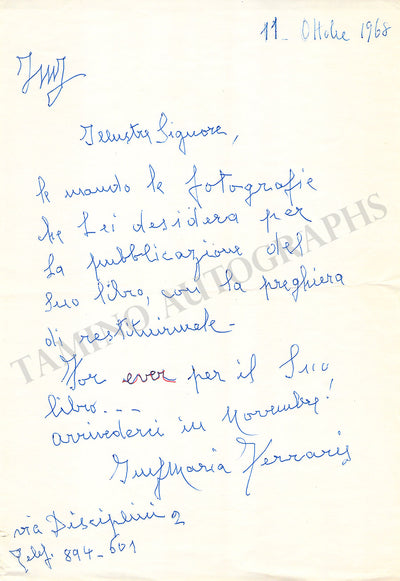 11_ Ottobre 1968
Illustre Signore,
Le mando le fotografie
che Lei desidera per
la pubblicazione del
Suo libro, con la preghiera
di restituirmele_
For ever per il Suo
libro...
arrivederci in Novembre!
Maria Ferraris
via Disciplini 2
Telef. 894_601
TAMINO AUTOGRAPHS